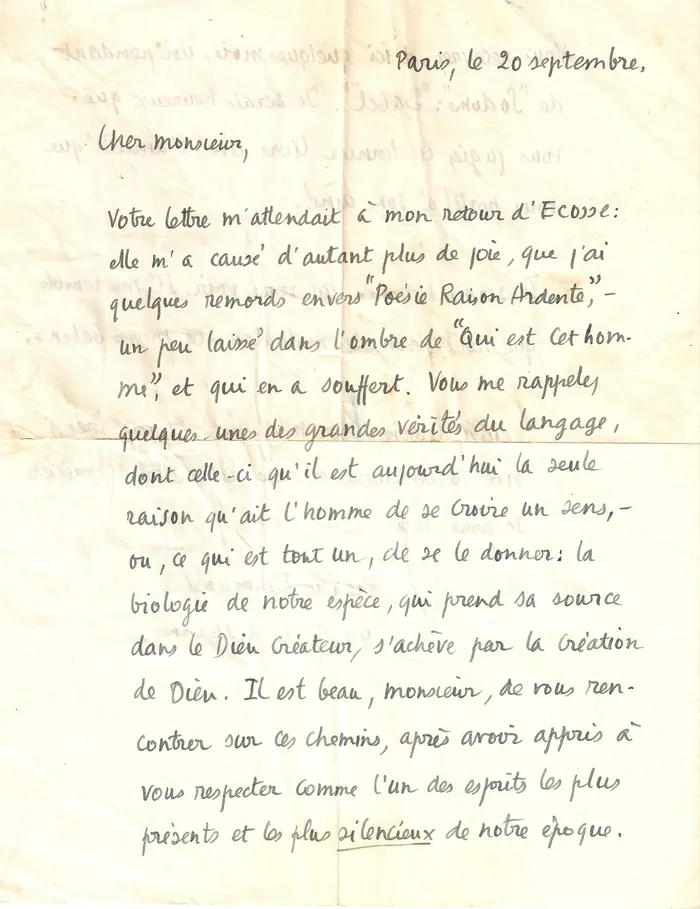 Paris, le 20 septembre.
Cher monsieur,
Votre lettre m'attendait à mon retour d'Ecosse:
elle m'a causé d'autant plus de joie, que j'ai
quelques remords envers "Poésie Raison Ardente", -
un peu laissé dans l'ombre de "Qui est cet hom-
me", et qui en a souffert. Vous me rappelez
quelques-unes des grandes vérités du langage,
dont celle-ci qu'il est aujourd'hui la seule
raison qu'ait l'homme de se croire un sens, -
ou, ce qui est tout un, de se le donner: la
biologie de notre espèce, qui prend sa source
dans le Dieu Créateur, s'achève par la création
de Dieu. Il est beau, monsieur, de vous ren-
contrer sur ces chemins, après avoir appris à
vous respecter comme l'un des esprits les plus
présents et les plus silencieux de notre époque.